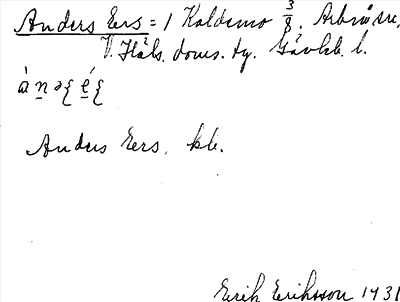 Anders Ers = 1 Koldemo 3/8. Arbrå sn,
V. Häls. doms. tg. Gävleb. l.
Anders Ers. kb.
Erik Eriksson 1931